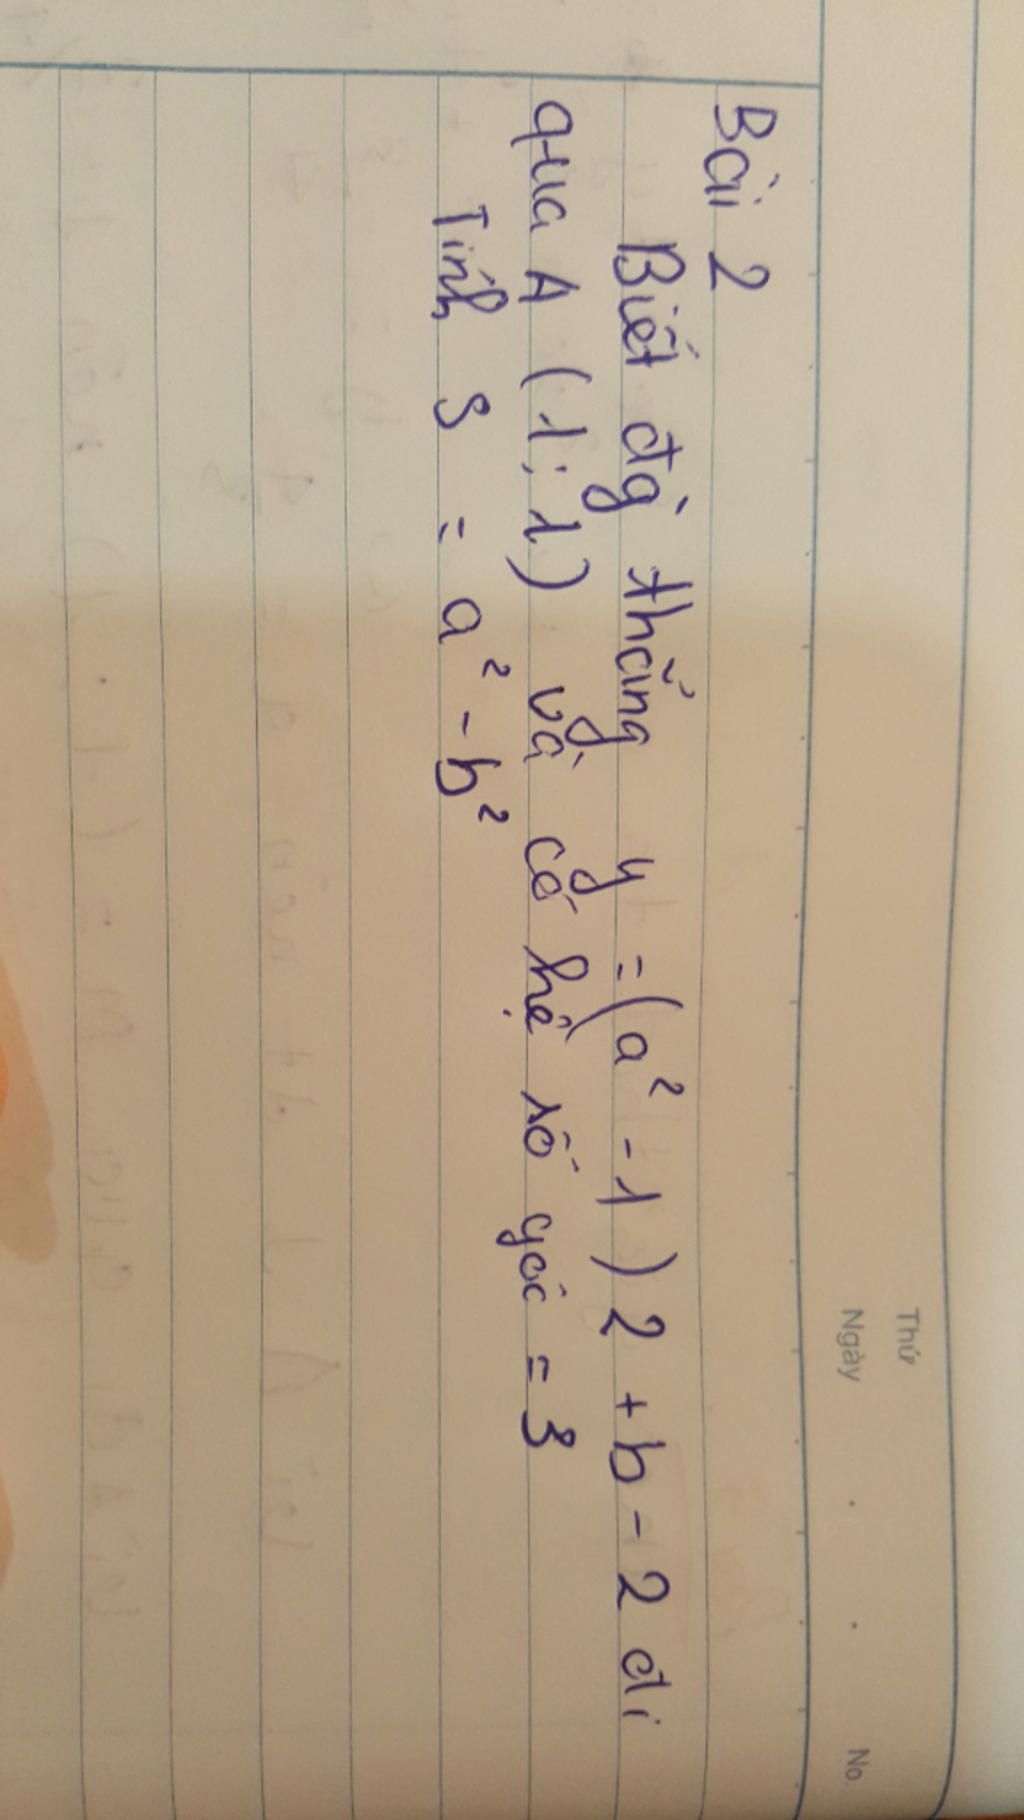 Thứ
Ngày . . No.
Bài 2
Biết đg` thẳng y = (a² - 1) 2 + b - 2 đi
qua A (1; 1) và có hệ số góc = 3
Tính S = a² - b²